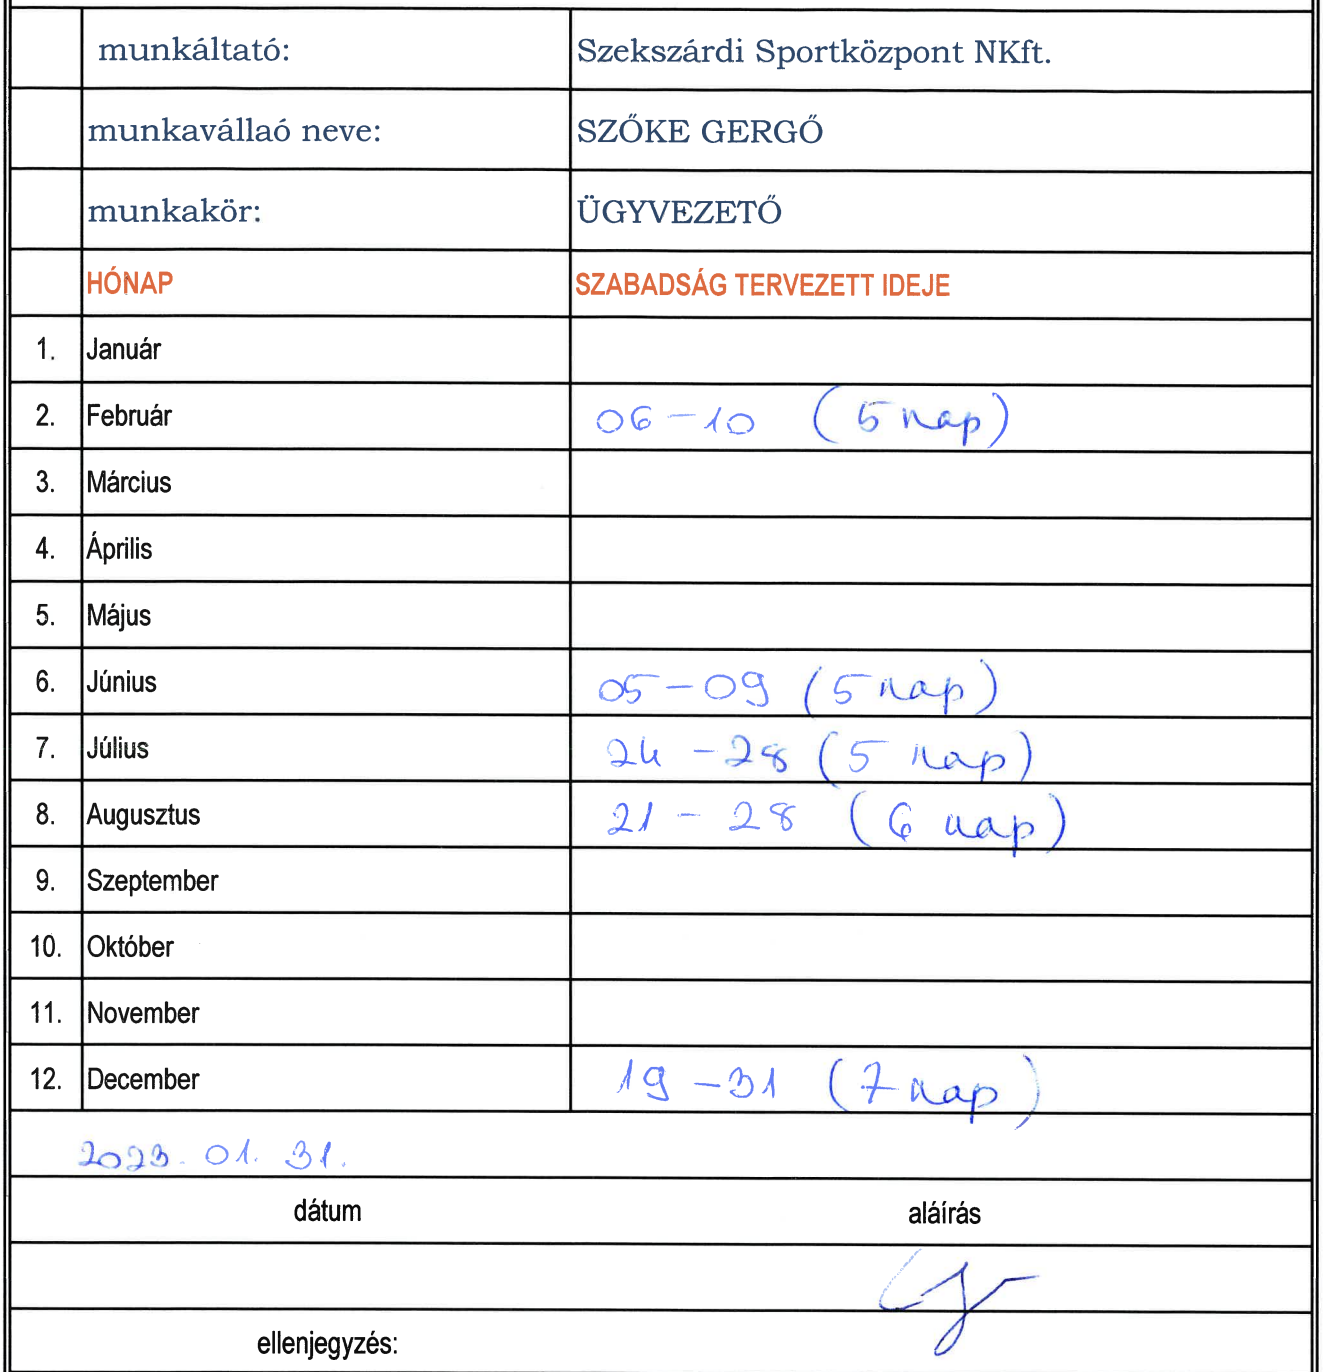 munkáltató: Szekszárdi Sportközpont NKft.
munkavállaó neve: SZŐKE GERGŐ
munkakör: ÜGYVEZETŐ
HÓNAP SZABADSÁG TERVEZETT IDEJE
1. Január
2. Február 06-10 (5 nap)
3. Március
4. Április
5. Május
6. Június 05-09 (5 nap)
7. Július 24-28 (5 nap)
8. Augusztus 21-28 (6 nap)
9. Szeptember
10. Október
11. November
12. December 19-31 (7 nap)
2023. 01. 31.
dátum aláírás
ellenjegyzés: